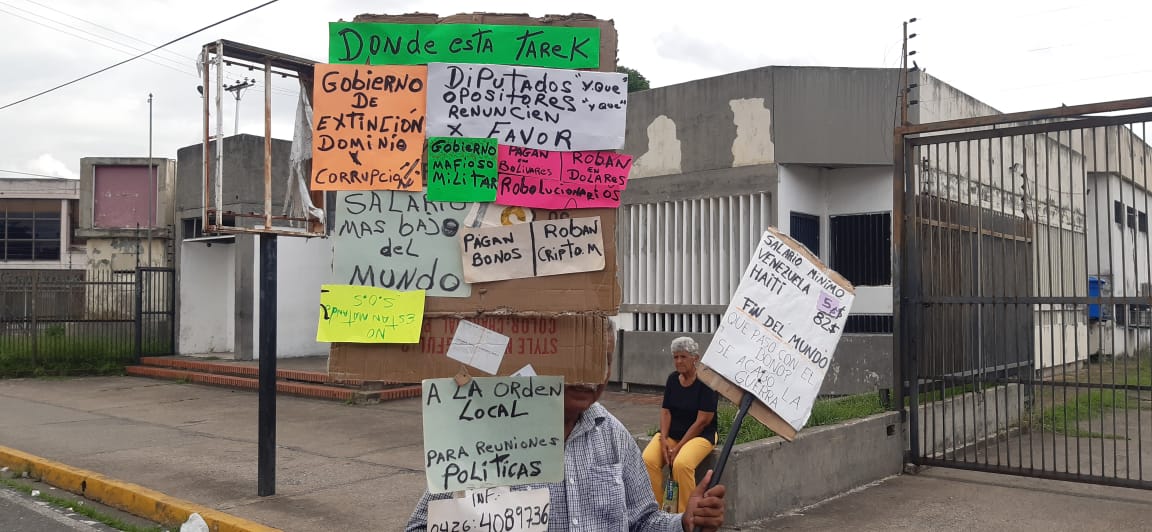 DONDE ESTA TAREK
GOBIERNO
DE
EXTINCIÓN
DOMINIO
Y
CORRUPCIÓN
DIPUTADOS "Y QUE"
OPOSITORES "Y QUE"
RENUNCIEN
X FAVOR
GOBIERNO
MAFIOSO
MILITAR
PAGAN
EN
BOLIVARES
ROBAN
EN
DOLARES
ROBOLUCIONARIOS
SALARIO
MAS BAJO
del
MUNDO
PAGAN
BONOS
ROBAN
CRIPTO.M
NO
ESTAN MATANDO
S.O.S
STYLE
A LA ORDEN
LOCAL
PARA REUNIONES
POLÍTICAS
INF.
0426:4089736
SALARIO MINIMO
VENEZUELA 5$
HAITI 82$
FIN DEL MUNDO
QUE PASO CON EL
BONO?
SE ACABO LA
GUERRA